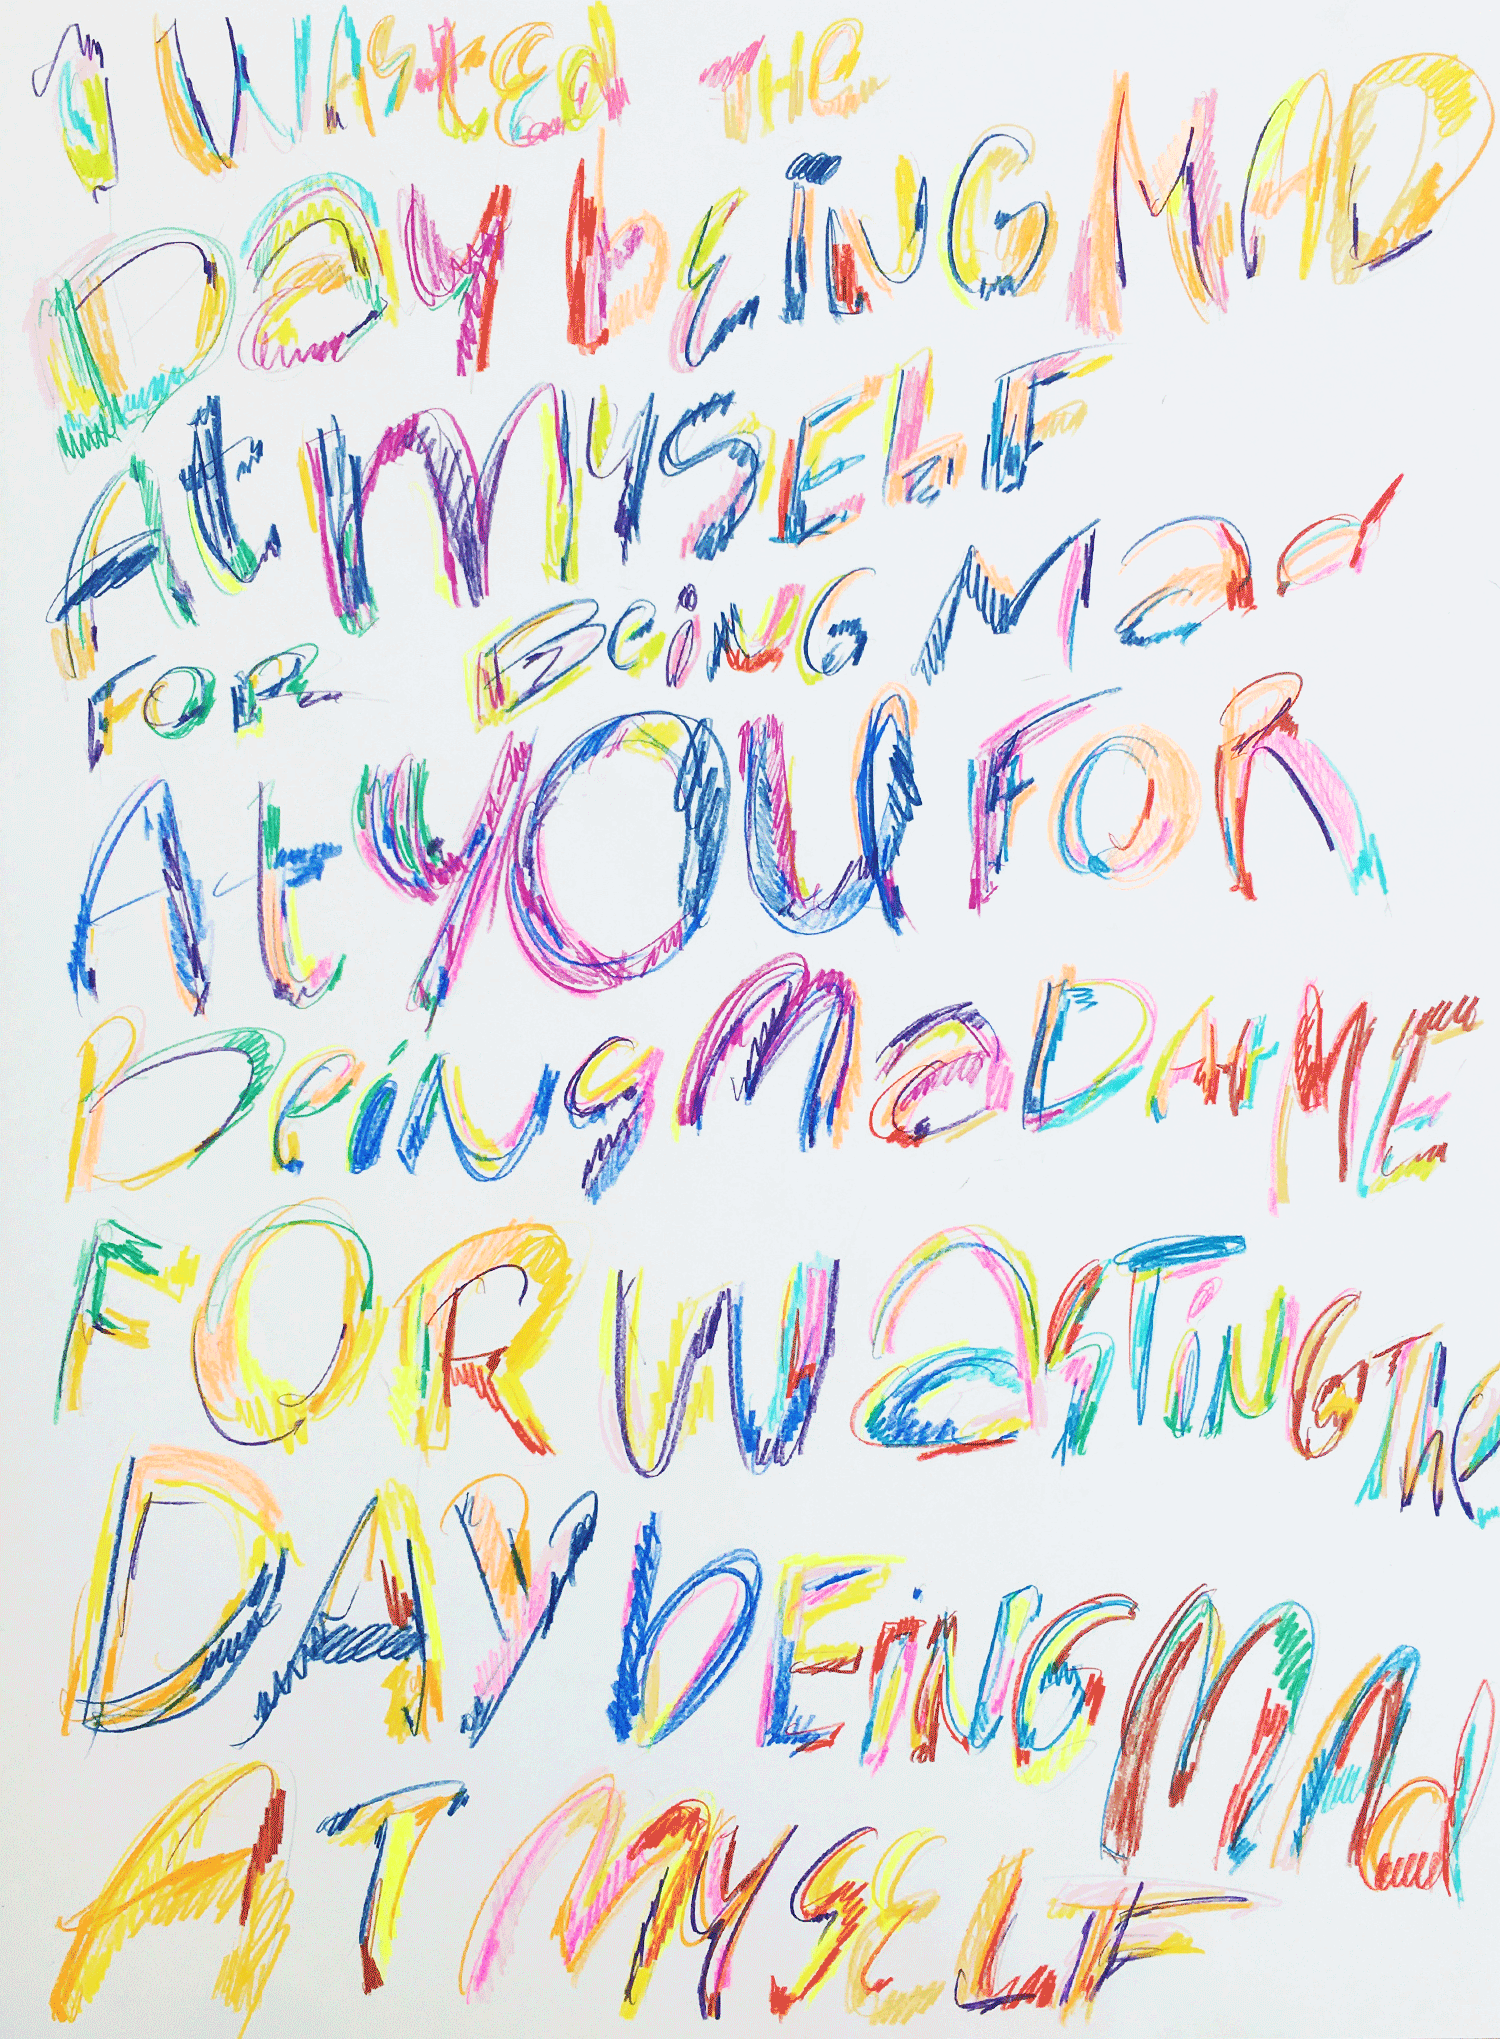 I WASTED THE
Day bEiNG MAD
At MYSELF
FOR BeiNG Mad
At YOU FOR
BeiNg MaD At ME
FOR WasTiNG The
DAY bEiNG MAd
AT MYSELF